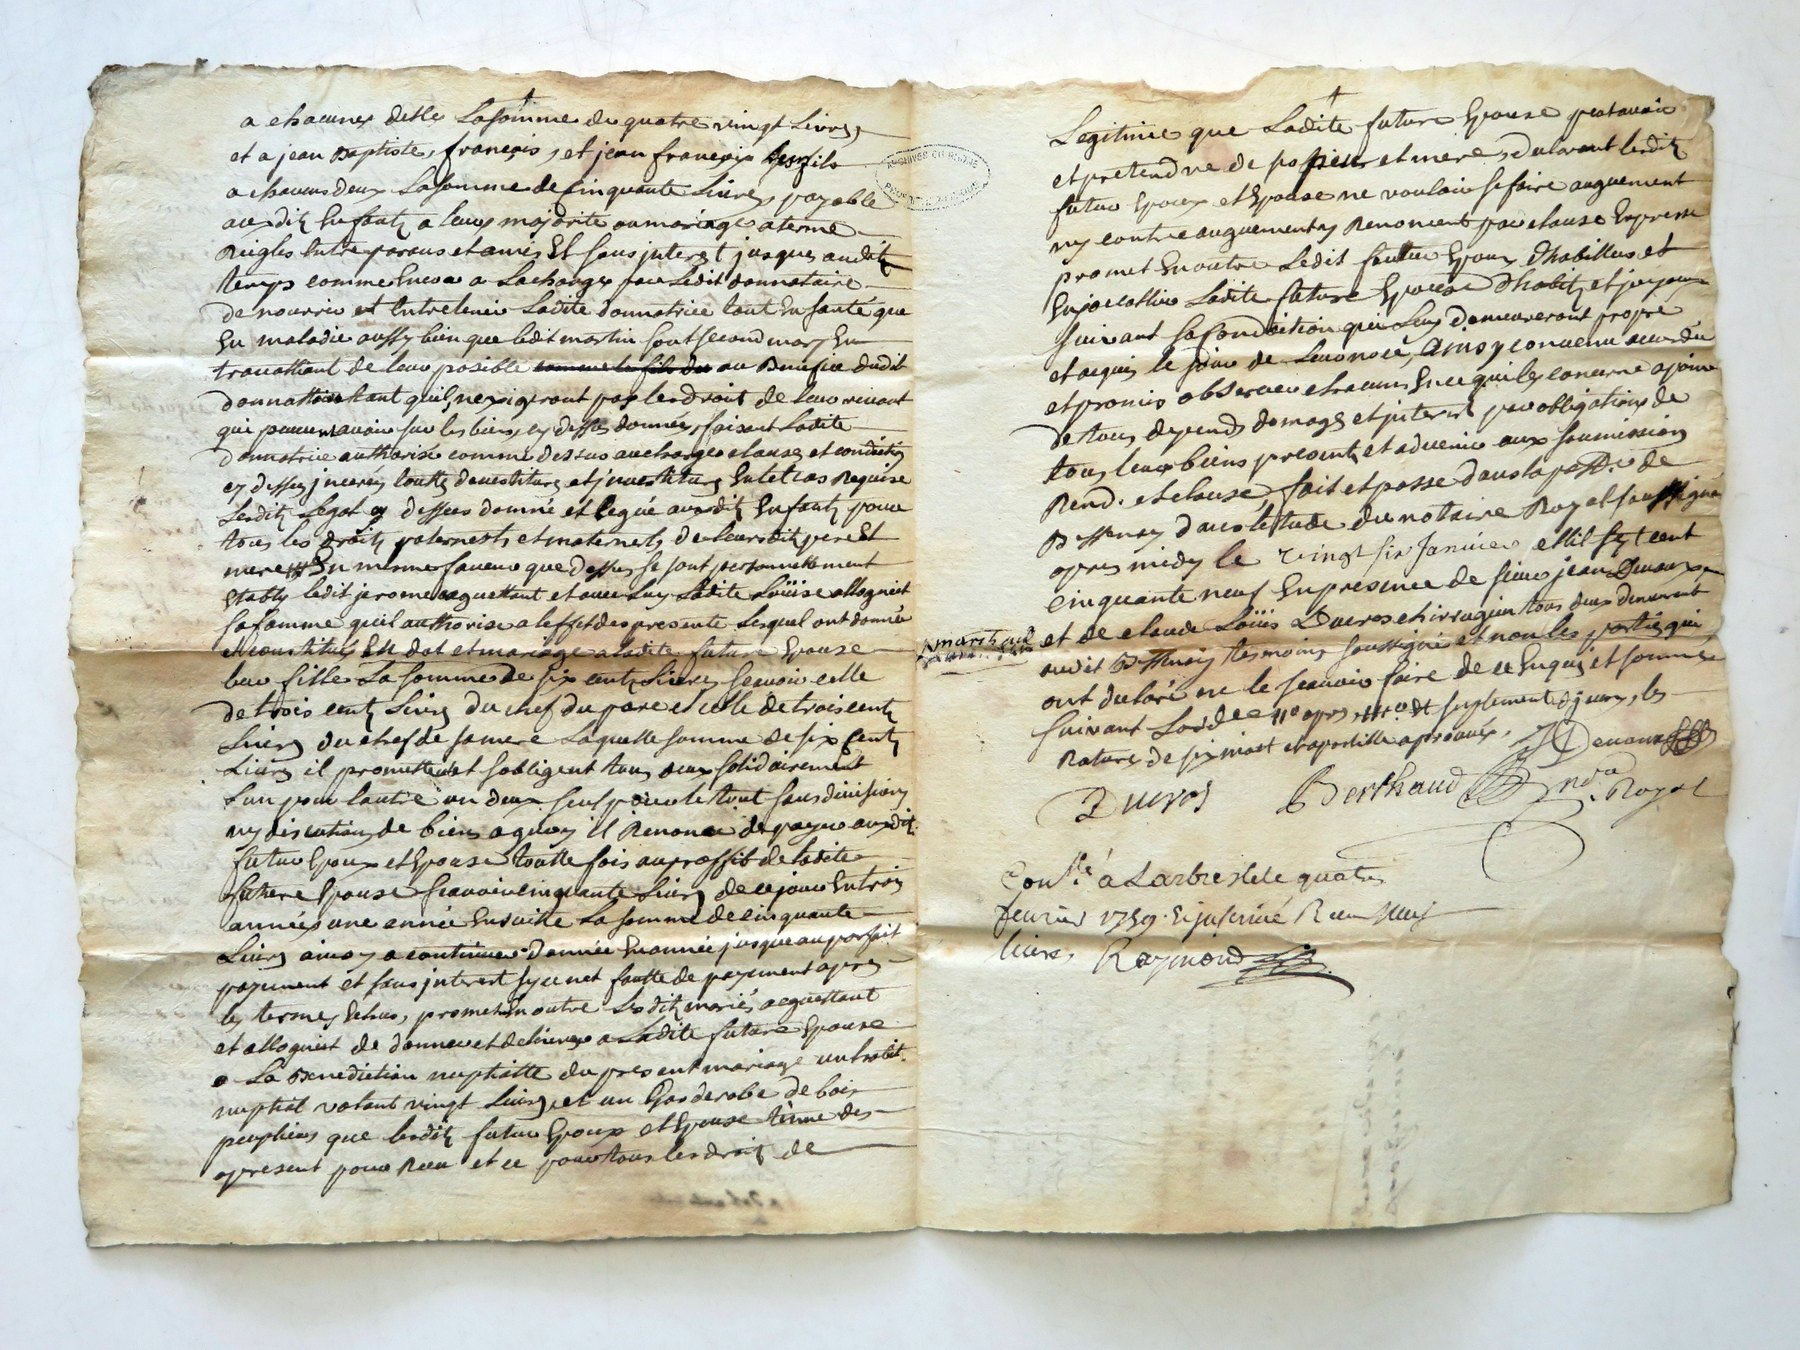 a chacunes delle La somme de quatre vingt Livres
et a jean Baptiste, françois, et jean françois ses fils
a chacuns deux La somme de Cinquante Livres, payable
auxdits Enfants a leurs majorité ou mariage a terme
Reiglés Entre parans et amis Et sans interest jusques audit
temps comme Encore a La charge par Ledit donnataire
de nourrir et Entretenir Ladite donnatrice tant En santé que
En maladie aussy bien que ledit martin son second mary En
travaillant de leur posible au Benefice dudit
donnattaire tant quils nexigeront pas les droits de leur vivant
qui peuvent avoir sur les biens cy dessus donnés, faisant Ladite
donnatrice authorisé comme dessus aux charges clauses et conditions
cy dessus inserés touttes devestiture et investiture En tel cas Requise
Lesdits Legat cy dessus donné et legué auxdits Enfants pour
tous les droits paternels et maternels de leursdits pere et
mere En mesme faveur que dessus se sont personnellement
Etably ledit jerome aquettant et avec Luy Ladite Loüise allognest
sa famme quil authorise a leffet des presente Lesquel ont donné
et constitués En dot et mariage a ladite future Epouse
leur fille La somme de six cents Livres scavoir celle
de trois cents Livres du chef du pere et celle de trois cents
Livres du chef de sa mere Laquelle somme de six cents
Livres il promettent et sobligent tous deux solidairement
Lun pour lautre un deux seul pour le tout sans division
ny discution de biens a quoy il Renonce de payer auxdits
futur Epoux et Epouse toutte fois au proffit de ladite
future Epouse scavoir cinquante Livres de ce jour En trois
années une année Ensuitte La somme de cinquante
Livres ainsy a continuer dannée En année jusque au parfait
payement et sans interest sy ce net fautte de payement apres
les termes Echus, promet En outre Lesdits mariés aquettant
et allognest de donner et delivrer a Ladite future Epouse
a La Benediction nuptialle du present mariage un habit
nuptial valant vingt Livres et un Garderobe de bois
peuplier que lesdits futur Epoux et Epouse tienne des
apresent pour Reçu et ce pour tous les droits de
Legitime que Ladite future Epouse peut avoir
et pretendre de ses pere et mere, declarant lesdits
futur Epoux et Epouse ne vouloir se faire auguement
ny contre auguement y Renoncent par clause Expresse
promet En outre Ledit futur Epoux dhabiller et
Enjoaller Ladite future Epouse dhabits et joyaux
suivant sa condition qui Luy demeureront propre
et aquis le jour de Leur noce, ainsy convenu accordé
et promis observer chacuns En ce qui les concerne a peine
de tous depends domages et interest par obligations de
tous leurs biens present et advenir aux soumissions
Rend. et clause, fait et passé dans la pars. de
Bessenay dans letude du notaire Royal soussigné
apres midy le vingt six Janvier mil sept cent
cinquante neuf En presence de sieur jean Devaux
marchand
et de claude Loüis Ducros chirurgien tous deux demeurant
audit Bessenay tesmoins soussigné et non les parties qui
ont declaré ne le scavoir faire de ce Enquis et sommé
suivant Lord.ce et suplement diceux, les
Rature de six most et apostille aprouvés.
Devaux
Ducros
Berthaud
no.re Royal
Con.llé a Larbresle le quatre
fevrier 1759. Et insinué Reçu neuf
livres,
Raymond